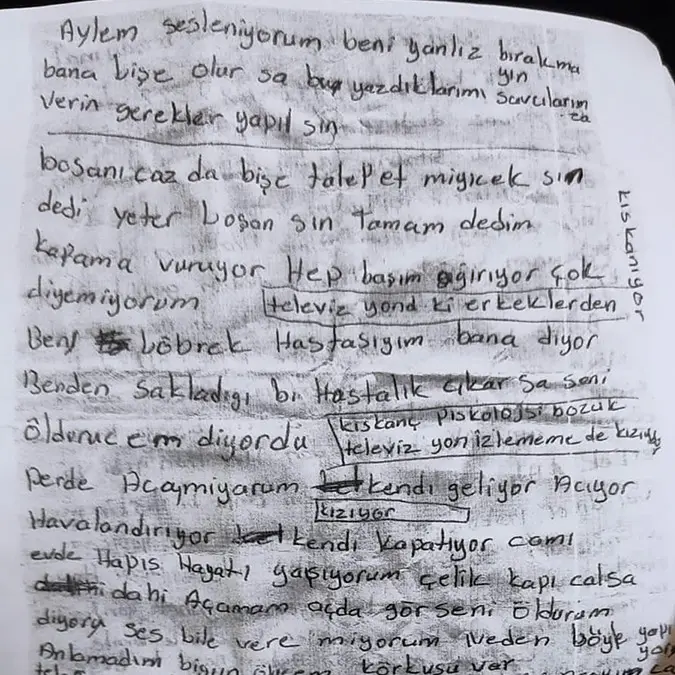 Aylem sesleniyorum beni yanlız bırakma
yın
bana bişe olur sa bu yazdıklarımı savcıların
za
verin gerekler yapıl sın
boşanıcaz da bişe talepet miyicek sın
dedi yeter boşan sın Tamam dedim
kafama vuruyor Hep başım ağırıyor çok
kıskanıyor
diyemiyorum televiz yond ki erkeklerden
Ben böbrek Hastasıyım bana diyor
Benden sakladıgı bi Hastalık çıkar sa seni
Öldürüc em diyordu
kıskanç piskolojsi bozuk
televiz yon izlememe de kızıyor
perde Açaymiyarum kendi geliyor Acıyor
kızıyor
Havalandırıyor kendi kapatıyor camı
evde Hapis Hayatı yaşıyorum çelik kapı calsa
dahi Açamam açda gör seni öldürüm
diyory ses bile vere miyorum Neden böyle yapı
yor
Anlamadım bigün körkusu var